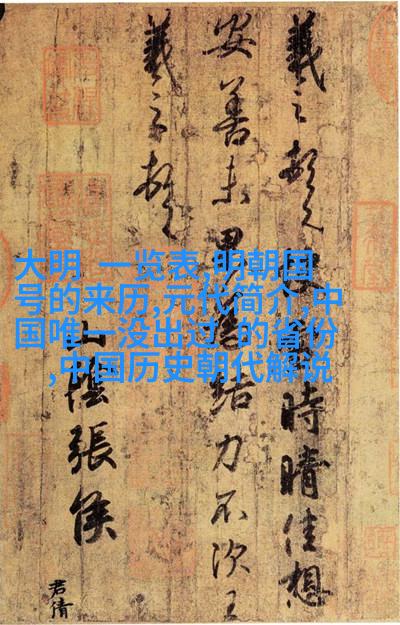 羲之頓首時晴佳想
安善未果為結力不次王
羲之頓首
山陰張侯
君倩
大明 一览表,明朝国
号的来历,元代简介,中
国唯一没出过 的省份
,中国历史朝代解说